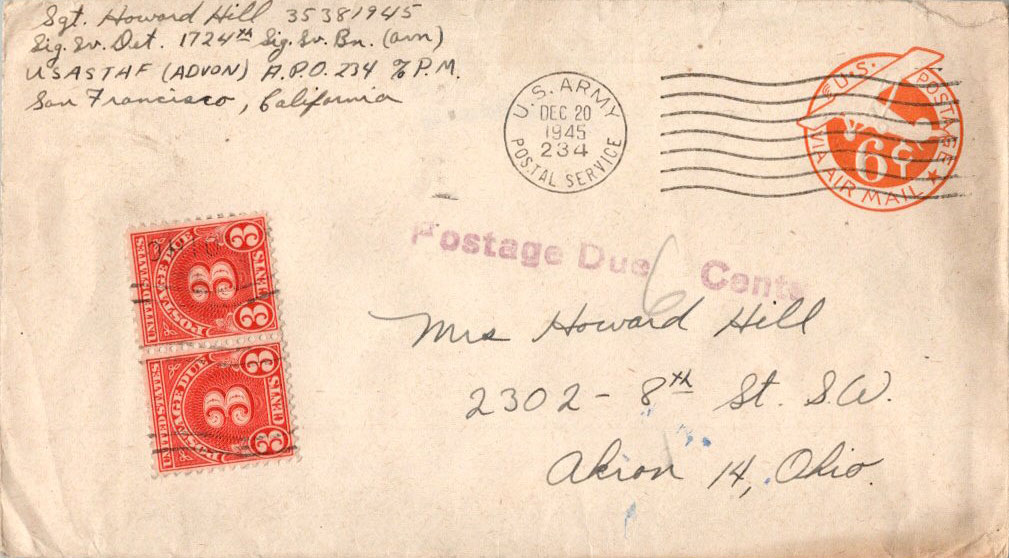 Sgt. Howard Hill 35381945
Sig. Sv. Det. 1724th Sig. Sv. Bn. (avn)
USASTAF (ADVON) A.P.O. 234 % P.M.
San Francisco, California
U.S. ARMY
DEC 20
1945
234
POSTAL SERVICE
U.S. POSTAGE
6¢
VIA AIR MAIL
Postage Due 6 Cents
UNITED STATES
POSTAGE DUE
3
3
3
CENTS
UNITED STATES
POSTAGE DUE
3
3
3
CENTS
Mrs Howard Hill
2302 - 8th St. S.W.
Akron 14, Ohio.